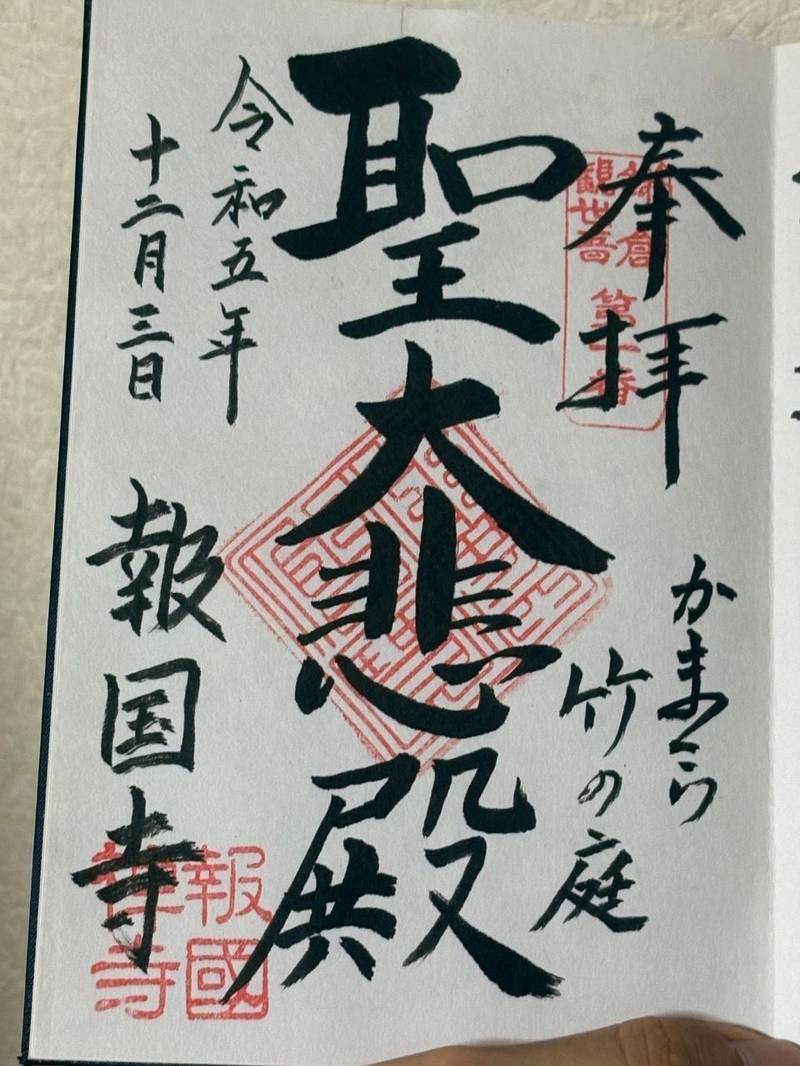 奉拝
鎌倉
観世音
第十番
かまくら
竹の庭
聖大悲殿
令和五年
十二月三日
報国寺
報國
寺